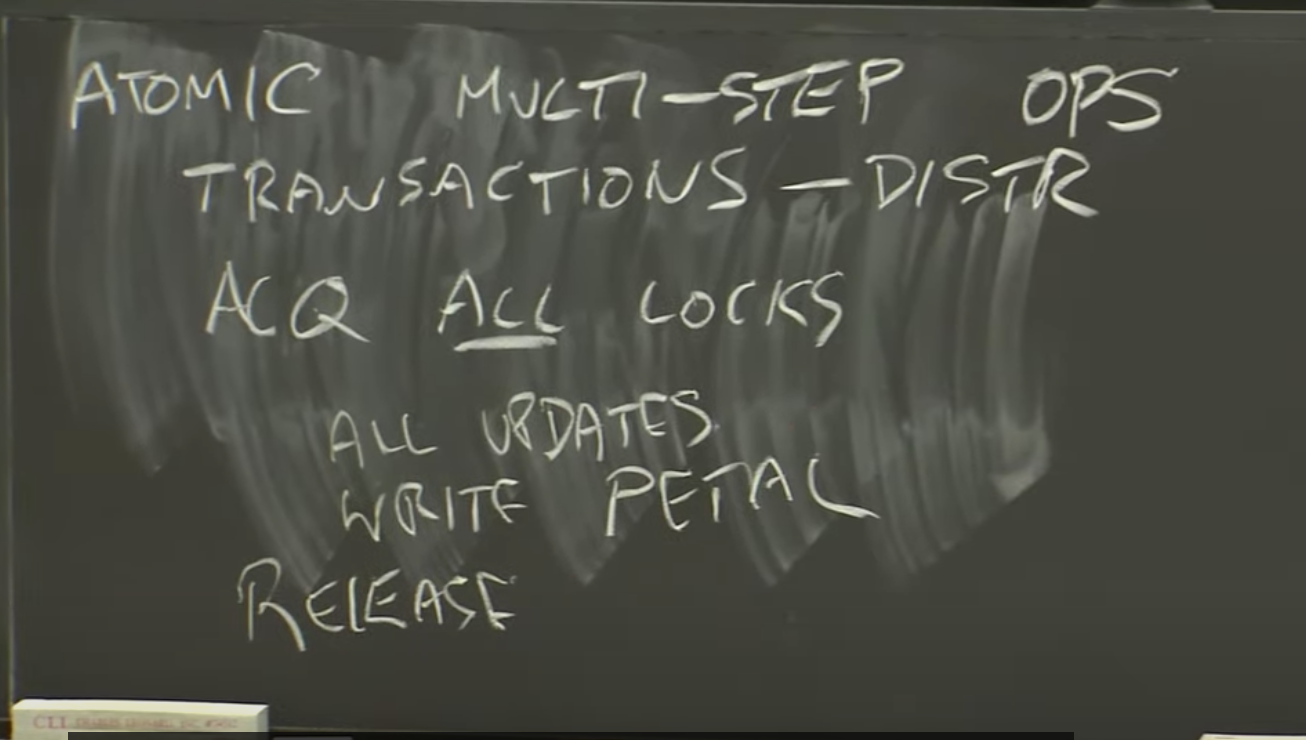 ATOMIC MULTI-STEP OPS
TRANSACTIONS - DISTR
ACQ ALL LOCKS
ALL UPDATES
WRITE PETAL
RELEASE